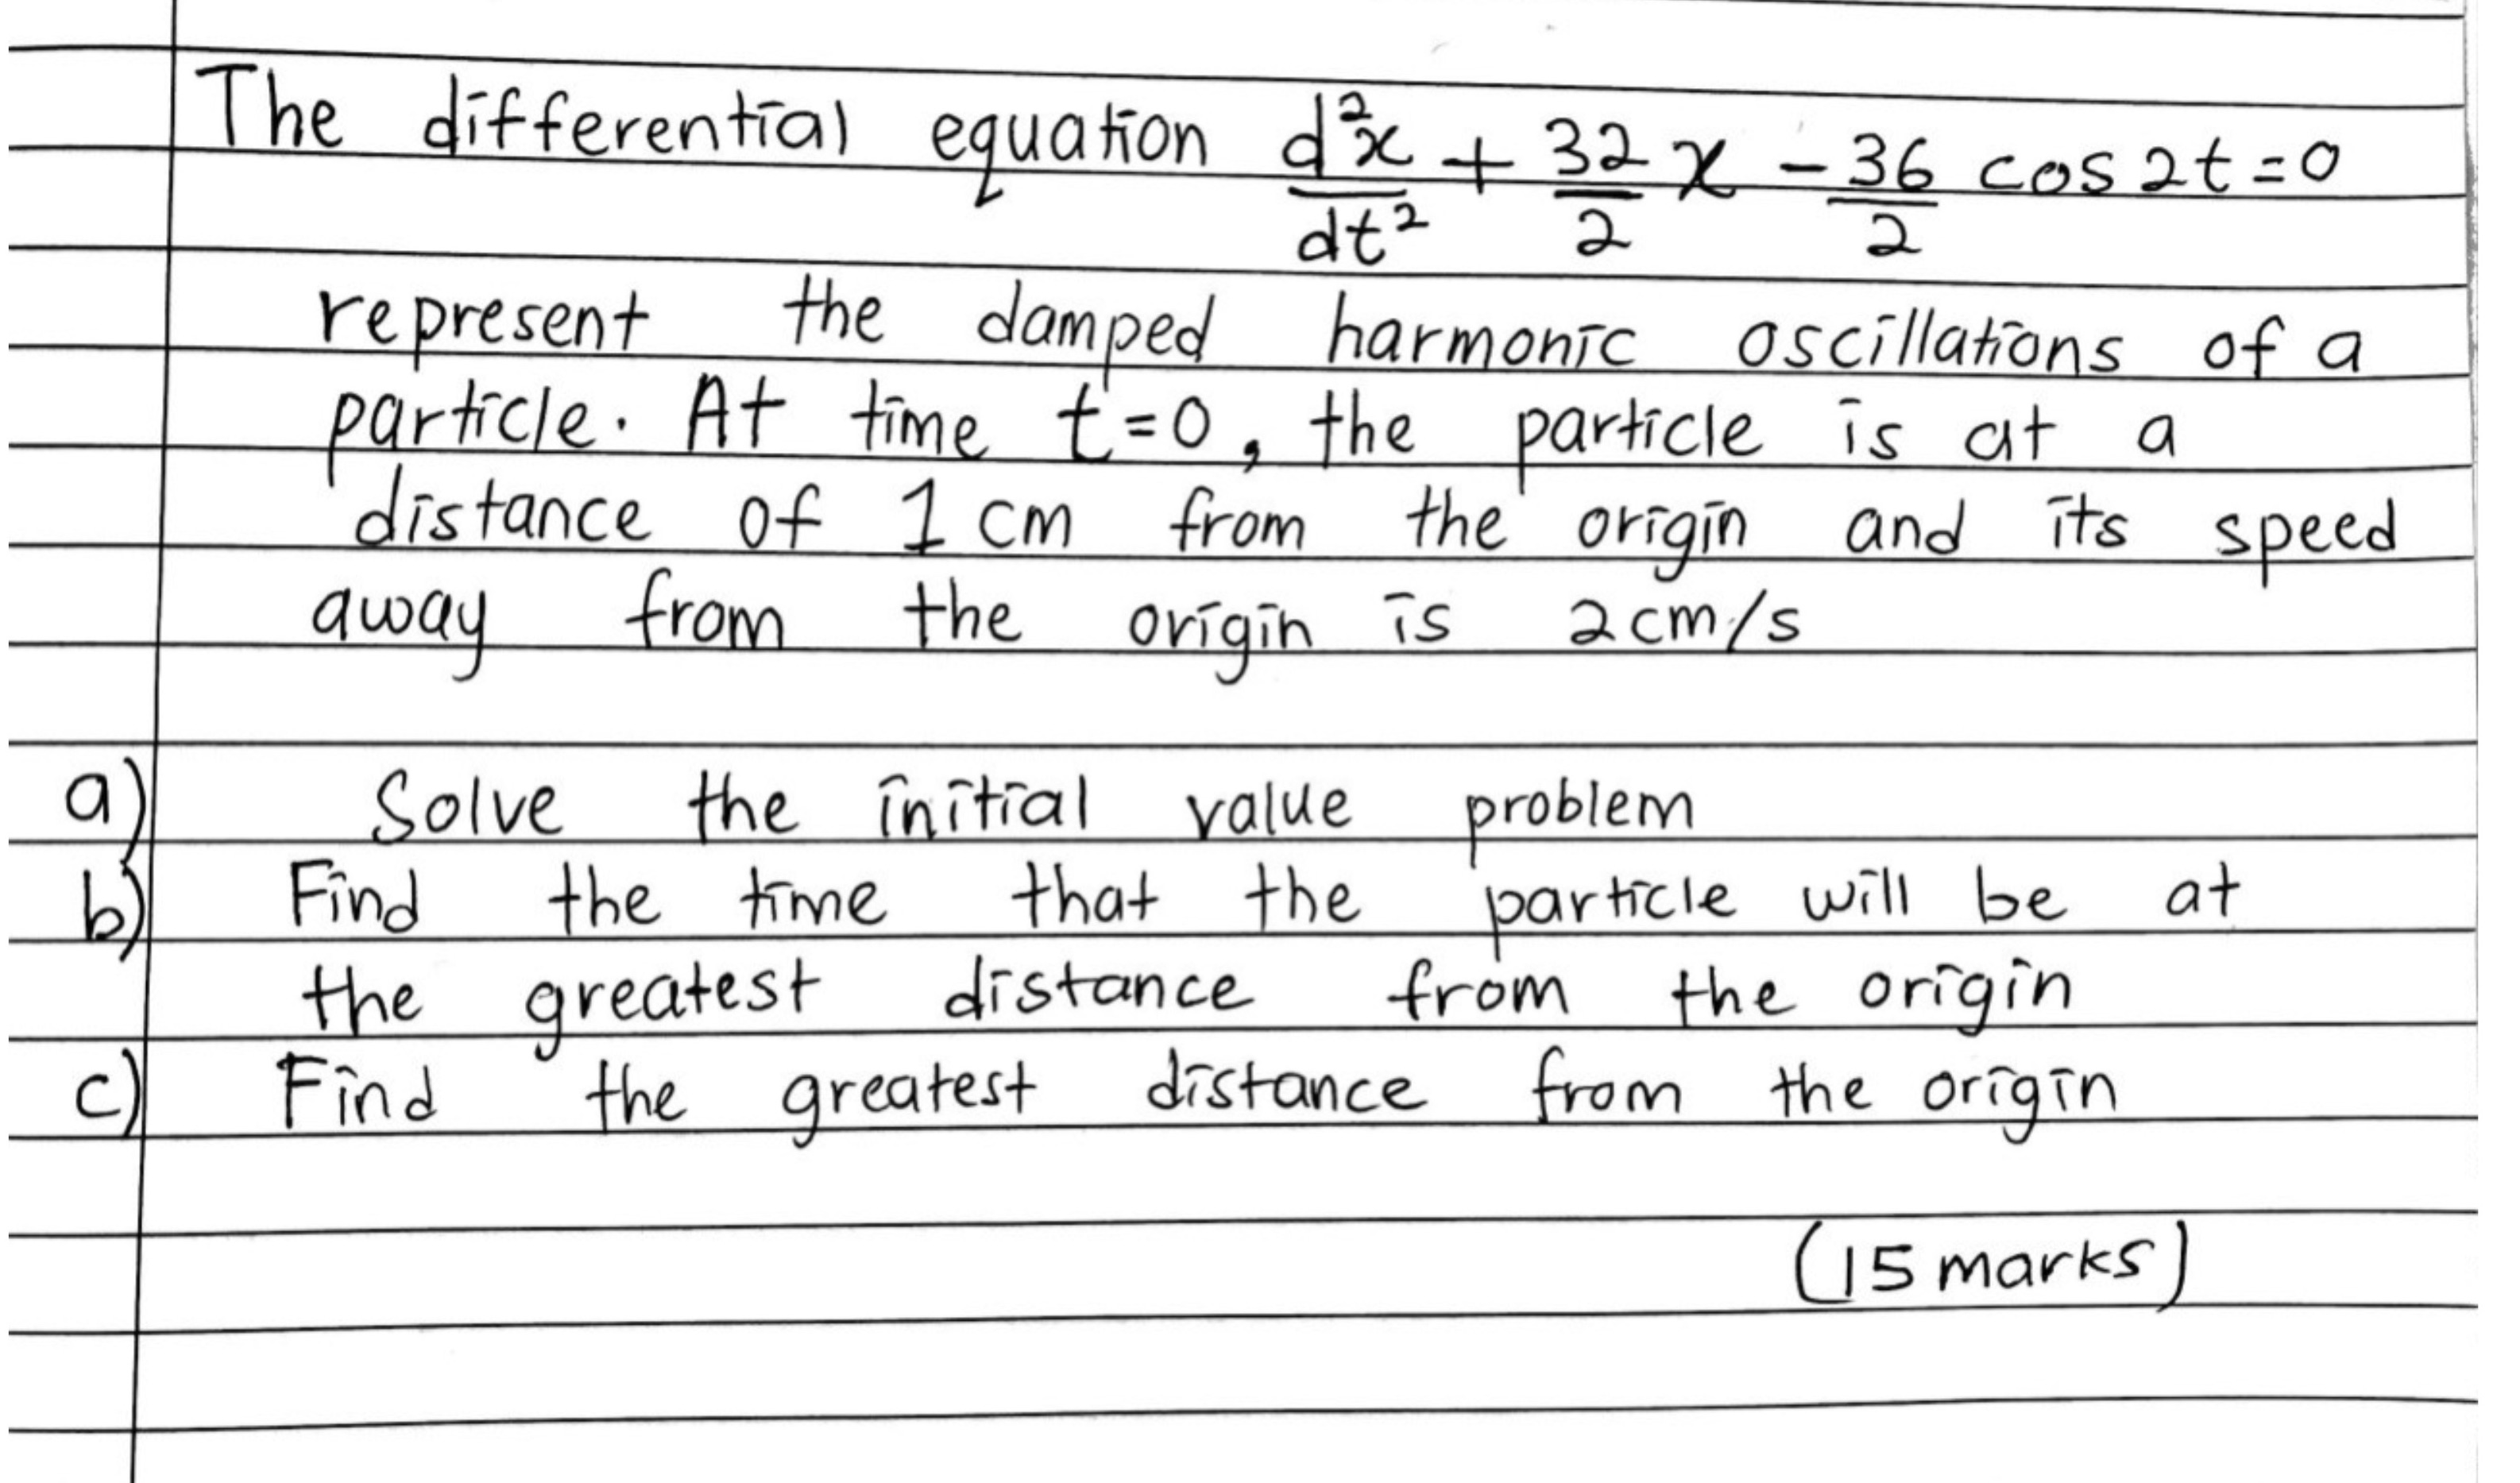 The differential equation d²x/dt² + 32/2 x - 36/2 cos 2t = 0
represent the damped harmonic oscillations of a
particle. At time t=0, the particle is at a
distance of 1 cm from the origin and its speed
away from the origin is 2cm/s
a) Solve the initial value problem
b) Find the time that the particle will be at
the greatest distance from the origin
c) Find the greatest distance from the origin
(15 marks)